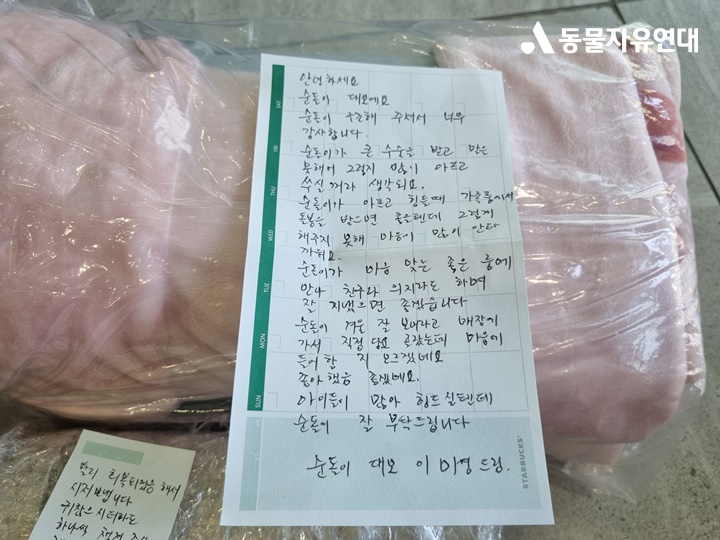 동물자유연대
안녕하세요
순돌이 대모에요
순돌이 구조해 주셔서 너무
감사합니다.
순돌이가 큰 수술을 받고 많은
못해어 그럴지 많이 아프고
쑤실꺼라 생각되요.
순돌이가 아프고 힘들때 가족품에서
돌봄을 받으면 좋을텐데 그렇게
해주지 못해 마음이 많이 안타
까워요.
순돌이가 마음 맞는 좋은 룸메
만나 친구와 의지라도 하며
잘 지냈으면 좋겠습니다
순돌이 겨울 잘 보내라고 매장에
가서 직접 담요 골랐는데 마음에
들어 할 지 모르겠네요
좋아했음 좋겠네요.
아이들이 많아 힘드실텐데
순돌이 잘 부탁드립니다
순돌이 대모 이미영 드림.
SAT
FRI
THU
WED
TUE
MON
SUN
STARBUCKS
빨리 회복되었음 해서
시저보냅니다
귀찮으시더라도
하나씩